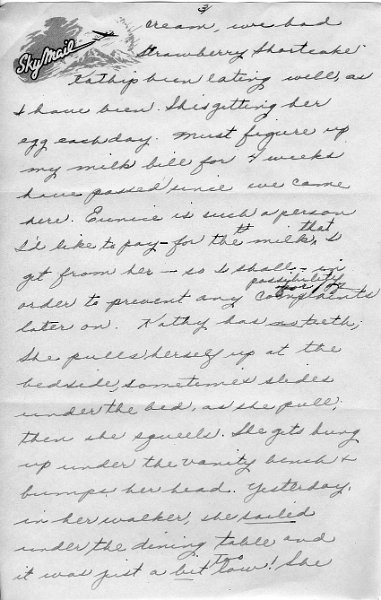 3
Sky Mail
cream, we had
Strawberry Shortcake.
Kathy's been eating well, as
I have been. She's getting her
egg each day. Must figure up
my milk bill for 4 weeks
have passed since we came
here. Eunice is such a person
I'd like to pay - for the milk, that I
get from her - so I shall - in
order to prevent any possibility for / of complaints
later on. Kathy has no teeth;
She pulls herself up at the
bedside, sometimes slides
under the bed, as she pulls,
then she squeels. She gets hung
up under the vanity bench &
bumps her head. Yesterday,
in her walker, she sailed
under the dining table and
it was just a bit too low! She